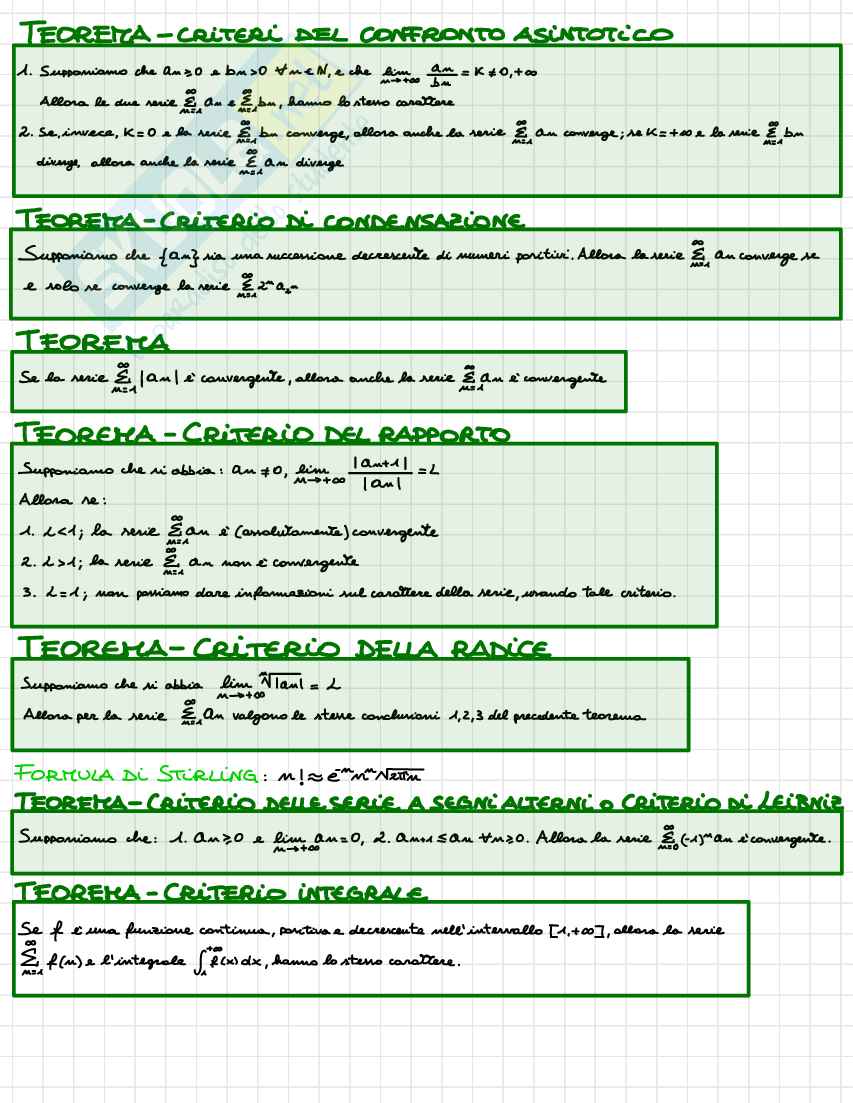 TEOREMA - CRITERI DEL CONFRONTO ASINTOTICO
1. Supponiamo che an ≥ 0 e bn > 0 ∀n ∈ N, e che lim n→+∞ an/bn = K ≠ 0, +∞
Allora le due serie ∑_{n=1}^{∞} an e ∑_{n=1}^{∞} bn, hanno lo stesso carattere
2. Se, invece, K=0 e la serie ∑_{n=1}^{∞} bn converge, allora anche la serie ∑_{n=1}^{∞} an converge; se K=+∞ e la serie ∑_{n=1}^{∞} bn
diverge, allora anche la serie ∑_{n=1}^{∞} an diverge
TEOREMA - CRITERIO DI CONDENSAZIONE
Supponiamo che {an} sia una successione decrescente di numeri positivi. Allora la serie ∑_{n=1}^{∞} an converge se
e solo se converge la serie ∑_{n=1}^{∞} 2^n a_{2^n}
TEOREMA
Se la serie ∑_{n=1}^{∞} |an| è convergente, allora anche la serie ∑_{n=1}^{∞} an è convergente
TEOREMA - CRITERIO DEL RAPPORTO
Supponiamo che si abbia: an ≠ 0, lim n→+∞ |an+1|/|an| = L
Allora se:
1. L<1; la serie ∑_{n=1}^{∞} an è (assolutamente) convergente
2. L>1; la serie ∑_{n=1}^{∞} an non è convergente
3. L=1; non possiamo dare informazioni sul carattere della serie, usando tale criterio.
TEOREMA - CRITERIO DELLA RADICE
Supponiamo che si abbia lim n→+∞ ⁿ√|an| = L
Allora per la serie ∑_{n=1}^{∞} an valgono le stesse conclusioni 1,2,3 del precedente teorema
FORMULA DI STIRLING: n! ≈ e^{-n} n^n √2πn
TEOREMA - CRITERIO DELLE SERIE A SEGNI ALTERNI O CRITERIO DI LEIBNIZ
Supponiamo che: 1. an ≥ 0 e lim n→+∞ an = 0, 2. an+1 ≤ an ∀n ≥ 0. Allora la serie ∑_{n=0}^{∞} (-1)^n an è convergente.
TEOREMA - CRITERIO INTEGRALE
Se f è una funzione continua, positiva e decrescente nell'intervallo [1,+∞], allora la serie
∑_{n=1}^{∞} f(n) e l'integrale ∫_{1}^{+∞} f(x) dx, hanno lo stesso carattere.